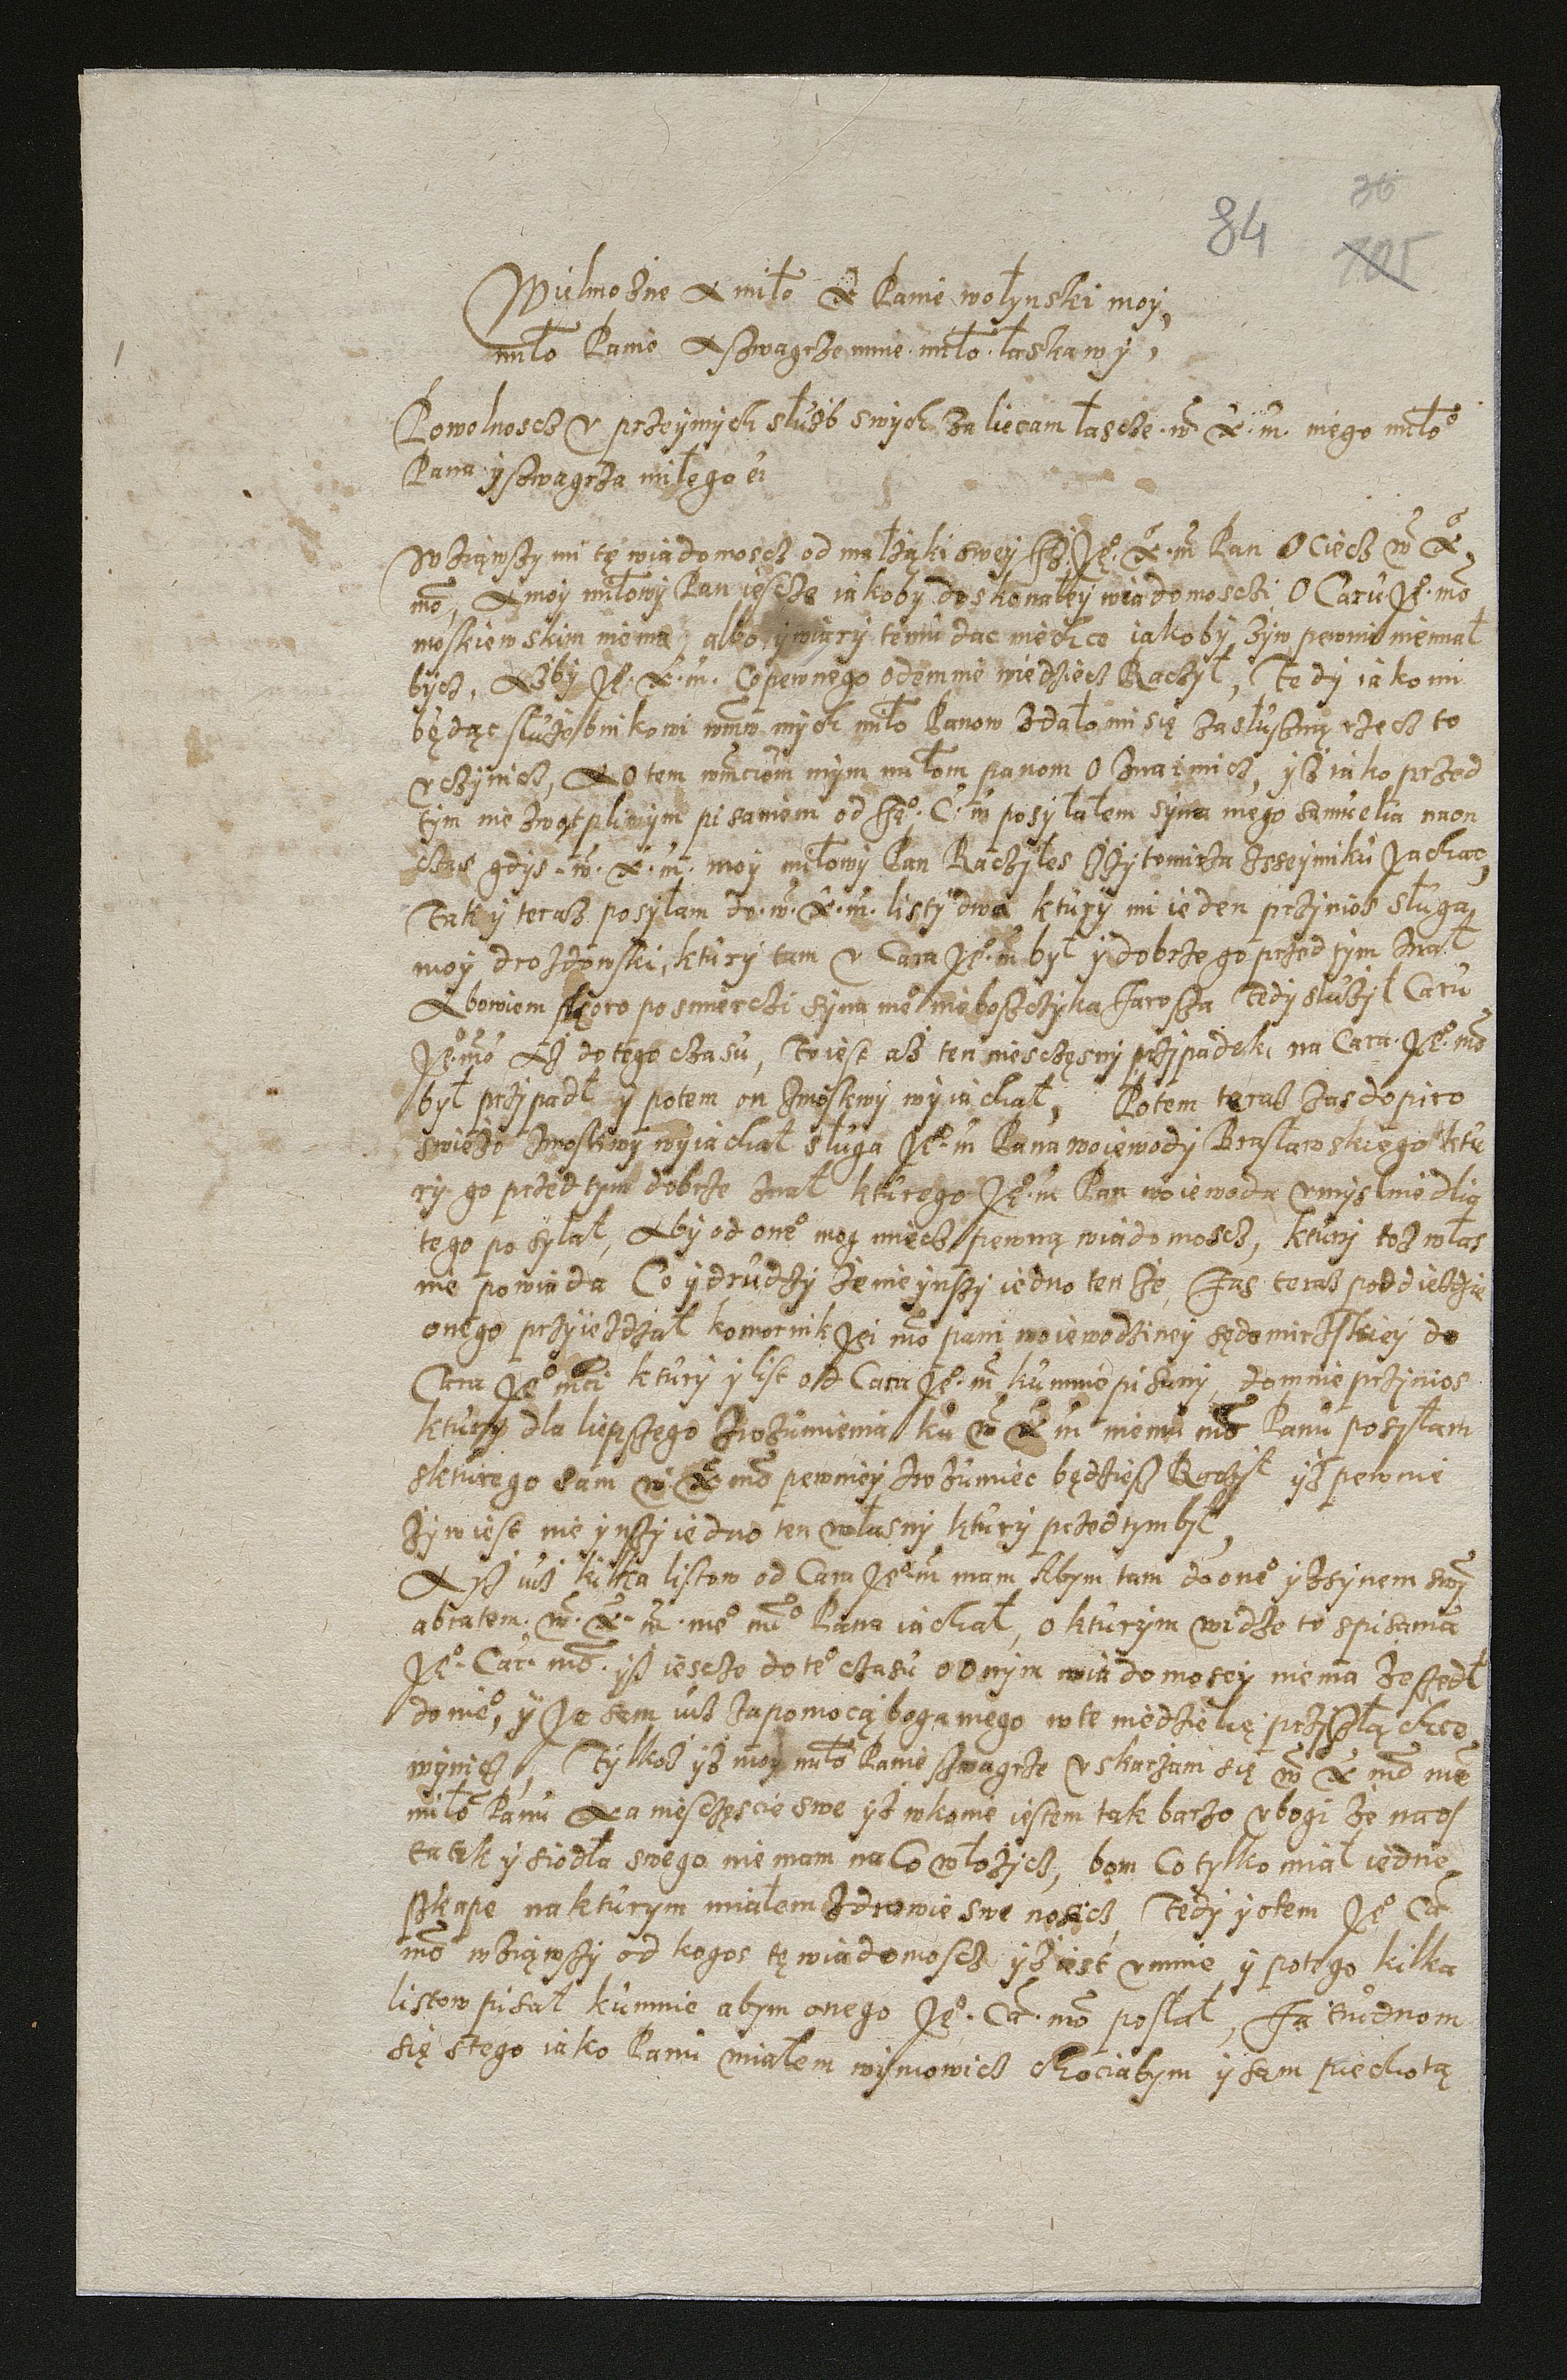 36
84
105
Wielmożne X miło X Panie wołynski moy,
miło Panie X szwagrze mnie miło łaskawy,
Powolnoscz y przeymych słuźb swych zaliecam łascze w X m mego miło
Pana y szwagrza miłego ei
Wziąwszy mi tę wiadomoscz od małżąki swey Jż Je X m Pan Ociecz w X
mo, X moy miłowy Pan iescze iakoby doskonałey wiadomosczi O Caru Je mo
moskiewskim niema, albo y wiary temu dac niechce iakoby żyw pewnie niemiał
bycz, Ażby Je X m Co pewnego odemnie wiedziecz Raczył, Tedy iako mi
będąc służebnikowi wmw mych miło Panow zdało mi się za słuszną rzecz to
vczynicz, X o tem wmciom mym miłom panom Oznaimicz, yż iako przed
tym nie zwątpliwym pisaniem od Je C m posyłałem syna mego Samuelia na on
czas gdys w X m moy miłowy Pan Raczyłes Zżytomirza Zseymiku Jachac,
Tak y teraz posyłam do w X m listy dwa ktury mi ieden przynios sługa
moy drozdowski, ktury tam v Cara Je m był y dobrze go przed tym znał
Abowiem skoro po smierczi syna me nieboszczyka Jarosza Tedy służył Caru
Je mo Aż do tego czasu, To iest aż ten niesczęsny przypadek na Cara Je mo
był przypadł y potem on zmoskwy wyiachał, Potem teraz zas dopiro
swieżo zmoskwy wyiachał sługa Je m Pana woiewody Brasławskiego ktu
ry go przed tym dobrze znał kturego Je m Pan woiewoda vmyslnie dlia
tego posyłał, Aby od one mog miecz pewną wiadomoscz, ktury toż włas
nie powiada Co y drudzy że nie ynszy iedno tenże, Jas teraz pod diebdzie
onego przyieżdżał komornik Jei mo pani woiewodziney sędomirzskiey do
Cara Je mci ktury y list od Cara Je m ku mnie pisany do mnie przynios
ktury dla liepszego zrozumienia ku w X m memu mo Panu posyłam
skturego sam w X mo pewniey zrozumiec będziesz Raczył yż pewnie
żyw iest nie ynszy iedno ten własny ktury przed tym był,
A yż iuż kilka listow od Cara Je m mam Abym tam do one y zsynem swy
a bratem w X m me mo Pana iachał, o kturym widze to spisania
Je Car mo yż iescze do te czasu o onym wiadomosci niema żeszedł
do nie, y Ja sam iuż za pomocą boga mego w te niedzielię przyszłą chce
wynicz, Tylkoż yż moy miło Panie szwagrze vskarżam się w X mo me
miło Panu X a niesczęscie swe yż wkonie iestem tak barzo vbogi że na os
tatek y siodła swego nie mam na Co włożycz, bom Co tylko miał iedne
szkape na kturym miałem zdrowie swe nosicz Tedy y otem Je Ca
mo wziąwszy od kogos tę wiadomoscz yż iest v mnie y potego kilka
listow pisał ku mnie abym onego Je Ca mo posłał, Ja trudnom
się stego iako Panu miałem wymowicz chociabym y sam piechotą